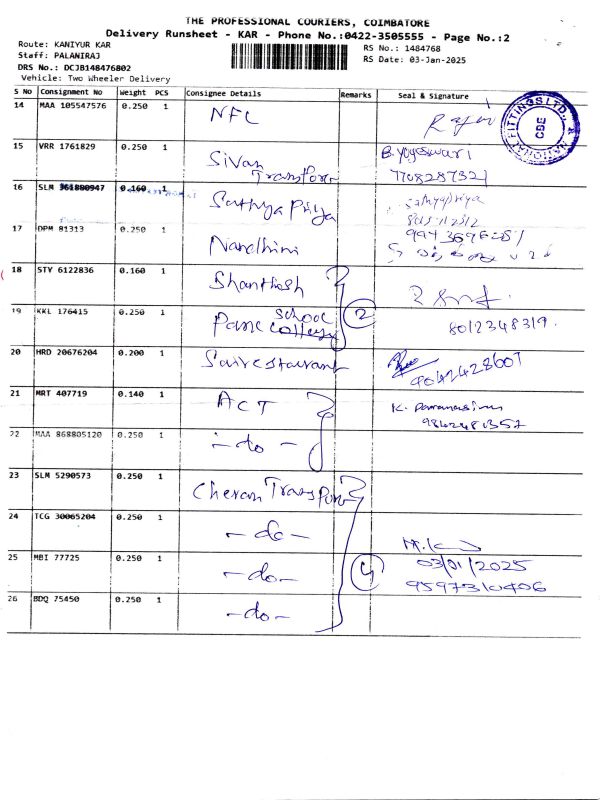 THE PROFESSIONAL COURIERS, COIMBATORE
Delivery Runsheet - KAR - Phone No.:0422-3505555 - Page No.:2
Route: KANIYUR KAR
Staff: PALANIRAJ
DRS No.: DCJB148476802
Vehicle: Two Wheeler Delivery
RS No.: 1484768
RS Date: 03-Jan-2025
S NO Consignment No Weight PCS Consignee Details Remarks Seal & Signature
14 MAA 105547576 0.250 1 NFC
FITTINGS LTD. CBE NATIONAL
15 VRR 1761829 0.250 1 Sivan Transport B. Yogeswari
7708287321
16 SLM 361800947 0.160 1 Sathya Priya Sathyapriya
17 DPM 81313 0.250 1 Nandhini
18 STV 6122836 0.160 1 Shanthosh
2
19 KKL 176415 0.250 1 School 8012348319.
20 HRD 20676204 0.200 1 Sairestaurant 9042428607
21 MRT 407719 0.140 1 ACT K. Paramasivam
9842481357
22 MAA 868805120 0.250 1 - do -
23 SLM 5290573 0.250 1 Cheran Transport
24 TCG 30065204 0.250 1 - do -
25 MBI 77725 0.250 1 - do - 4 03/01/2025
9597310406
26 BDQ 75450 0.250 1 - do -